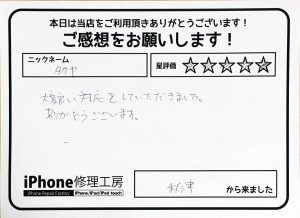 本日は当店をご利用頂きありがとうございます!
ご感想をお願いします!
ニックネーム
タクヤ
星評価 ☆☆☆☆☆
対応をしていただきました。
ありがとうございます。
iPhone修理工房
iPhone Repair Factory
iPhone/iPad/iPod touch
から来ました